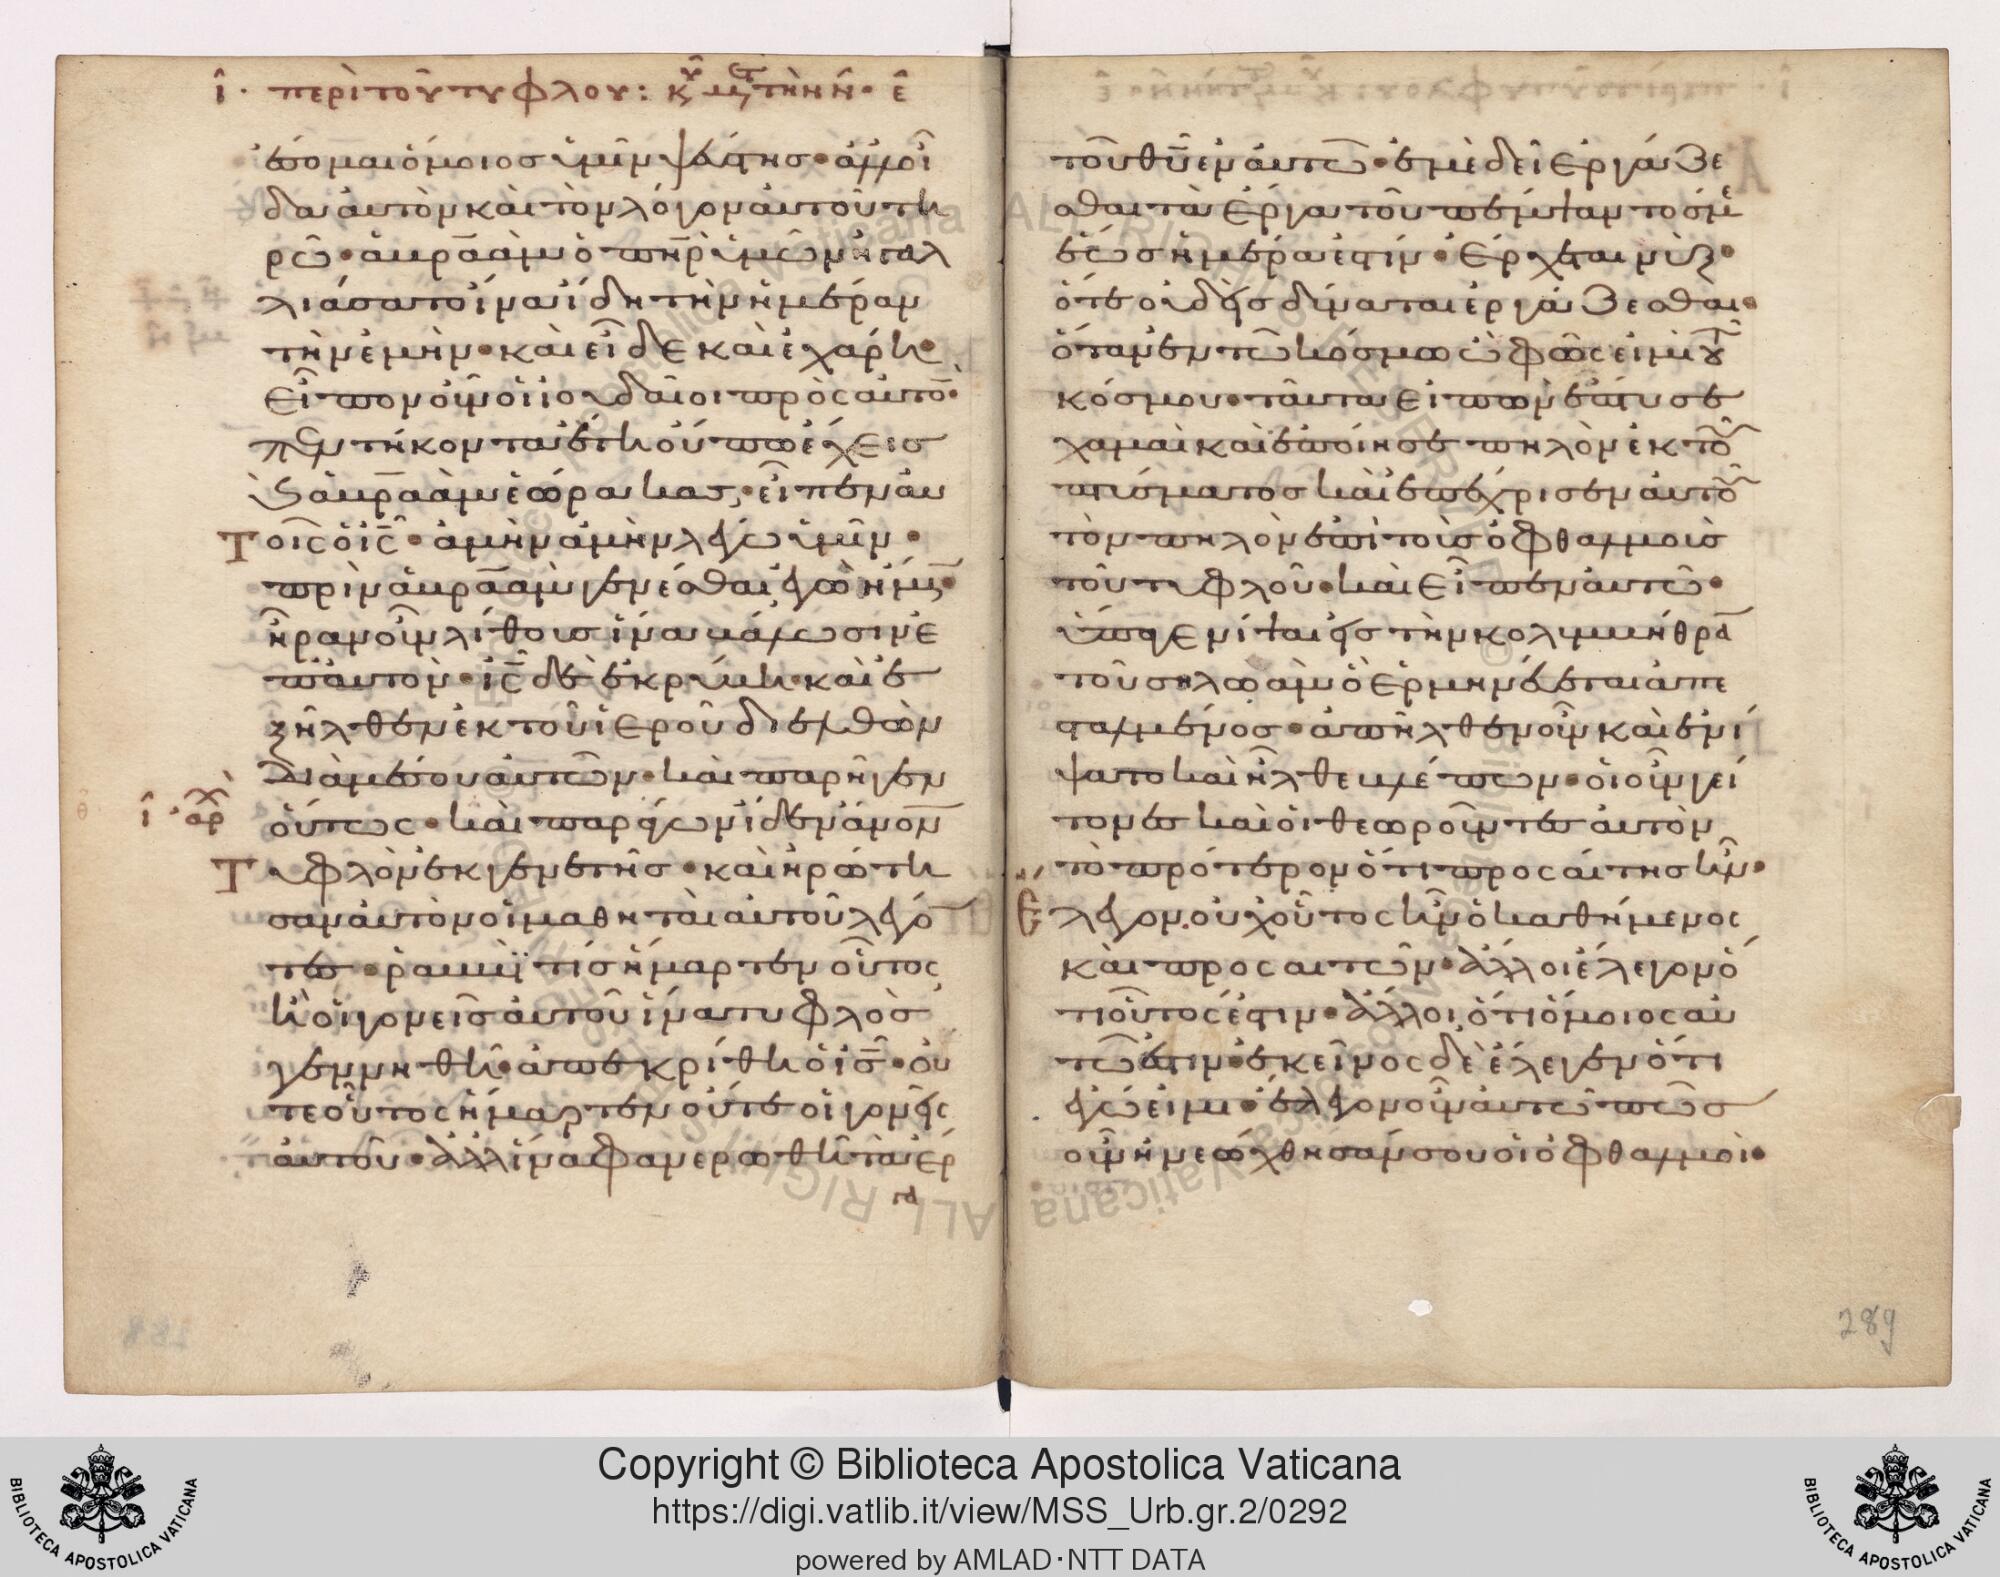 ι̂ · περὶ τοῦ τυφλοῦ:
ἔσομαι ὅμοιος ὑμῖν ψεύστης · ἀλλ οἶ
δα αὐτὸν καὶ τὸν λόγον αὐτοῦ τη
ρῶ · ἀβραὰμ ὁ πη̅ρ ὑμῶν ἠγαλ
λιάσατο ἵνα ἴδη τὴν ἡμέραν
τὴν ἐμὴν · καὶ εἶδε καὶ ἐχάρη ·
εἶπον οὖν οἱ ἰουδαῖοι πρὸς αὐτὸ̅ ·
πεντήκοντα ἔτη οὔπω ἔχεις
καὶ ἀβραὰμ ἑώρακας · εἶπεν αυ
τοῖς ὁ ις̅ · ἀμὴν ἀμὴν λέγω ὑμῖν ·
πρὶν ἀβραὰμ γενέσθαι ἐγὼ εἰμι ·
ἦραν οὖν λίθους ἵνα βάλωσιν ἐ
π αὐτὸν · ις̅ δὲ ἐκρύβη · καὶ ἐ
ξῆλθεν ἐκ τοῦ ἱεροῦ διελθὼν
διὰ μέσου αὐτῶν · καὶ παρῆγεν
οὕτως · καὶ παράγων ἴδεν ἄνο̅ν
Τυφλὸν ἐκ γενετῆς · καὶ ἠρώτη
σαν αὐτὸν οἱ μαθηταὶ αὐτοῦ λέγο̅
τες · ῥαββῒ τίς ἥμαρτεν οὗτος
ἢ οἱ γονεῖς αὐτοῦ ἵνα τυφλὸς
γεννηθῆ · ἀπεκρίθη ὁ ις̅ · ού
τε οὗτος ἥμαρτεν οὔτε οἱ γονεῖς
αὐτοῦ · ἀλλ ἵνα φανερωθῆ τὰ ἔρ
γα
τοῦ θυ̅ ἐν αὐτῶ · ἐμὲ δεῖ ἐργάζε
σθαι τὰ ἔργα τοῦ πέμψαντός με
ἕως ἡμέρα ἐστίν · ἔρχεται νὺξ ·
ὅτε οὐδεὶς δύναται ἐργάζεσθαι ·
ὅταν ἐν τῶ κόσμω ὦ φῶς εἰμὶ τοῦ
κόσμου · ταῦτα εἰπὼν ἔπτυσε
χαμαὶ καὶ ἐποίησε πηλὸν ἐκ τοῦ
πτύσματος καὶ ἐπέχρισεν αὐτοῦ
τὸν πηλὸν ἐπὶ τοὺς ὀφθαλμοὺς
τοῦ τυφλοῦ · καὶ εἶπεν αὐτῶ ·
ὕπαγε νίψαι εἰς τὴν κολυμβήθρα̅
τοῦ σηλωὰμ ὃ ἑρμηνεύεται ἀπε
σταλμένος · ἀπῆλθεν οὖν καὶ ἐνί
ψατο καὶ ἦλθε βλέπων · οἱ οὖν γεί
τονες καὶ οἱ θεωροῦντες αὐτὸν
τὸ πρότερον ὅτι προσαίτης ἦν ·
Ἔλεγον. οὐχ οὗτος ἦν ὁ καθήμενος
καὶ προσαιτῶν · ἄλλοι ἔλεγον ὅ
τι οὗτός ἐστιν · ἄλλοι ὅτι ὅμοιος αυ
τῶ ἐστιν · ἐκεῖνος δὲ ἔλεγεν ὅτι
ἐγώ εἰμι · ἔλεγον οὖν αὐτῶ πῶς
οὖν ἠνεώχθησάν σου οἱ ὀφθαλμοί ·
289
Copyright © Biblioteca Apostolica Vaticana
https://digi.vatlib.it/view/MSS_Urb.gr.2/0292
powered by AMLAD·NTT DATA
BIBLIOTECA APOSTOLICA VATICANA
BIBLIOTECA APOSTOLICA VATICANA